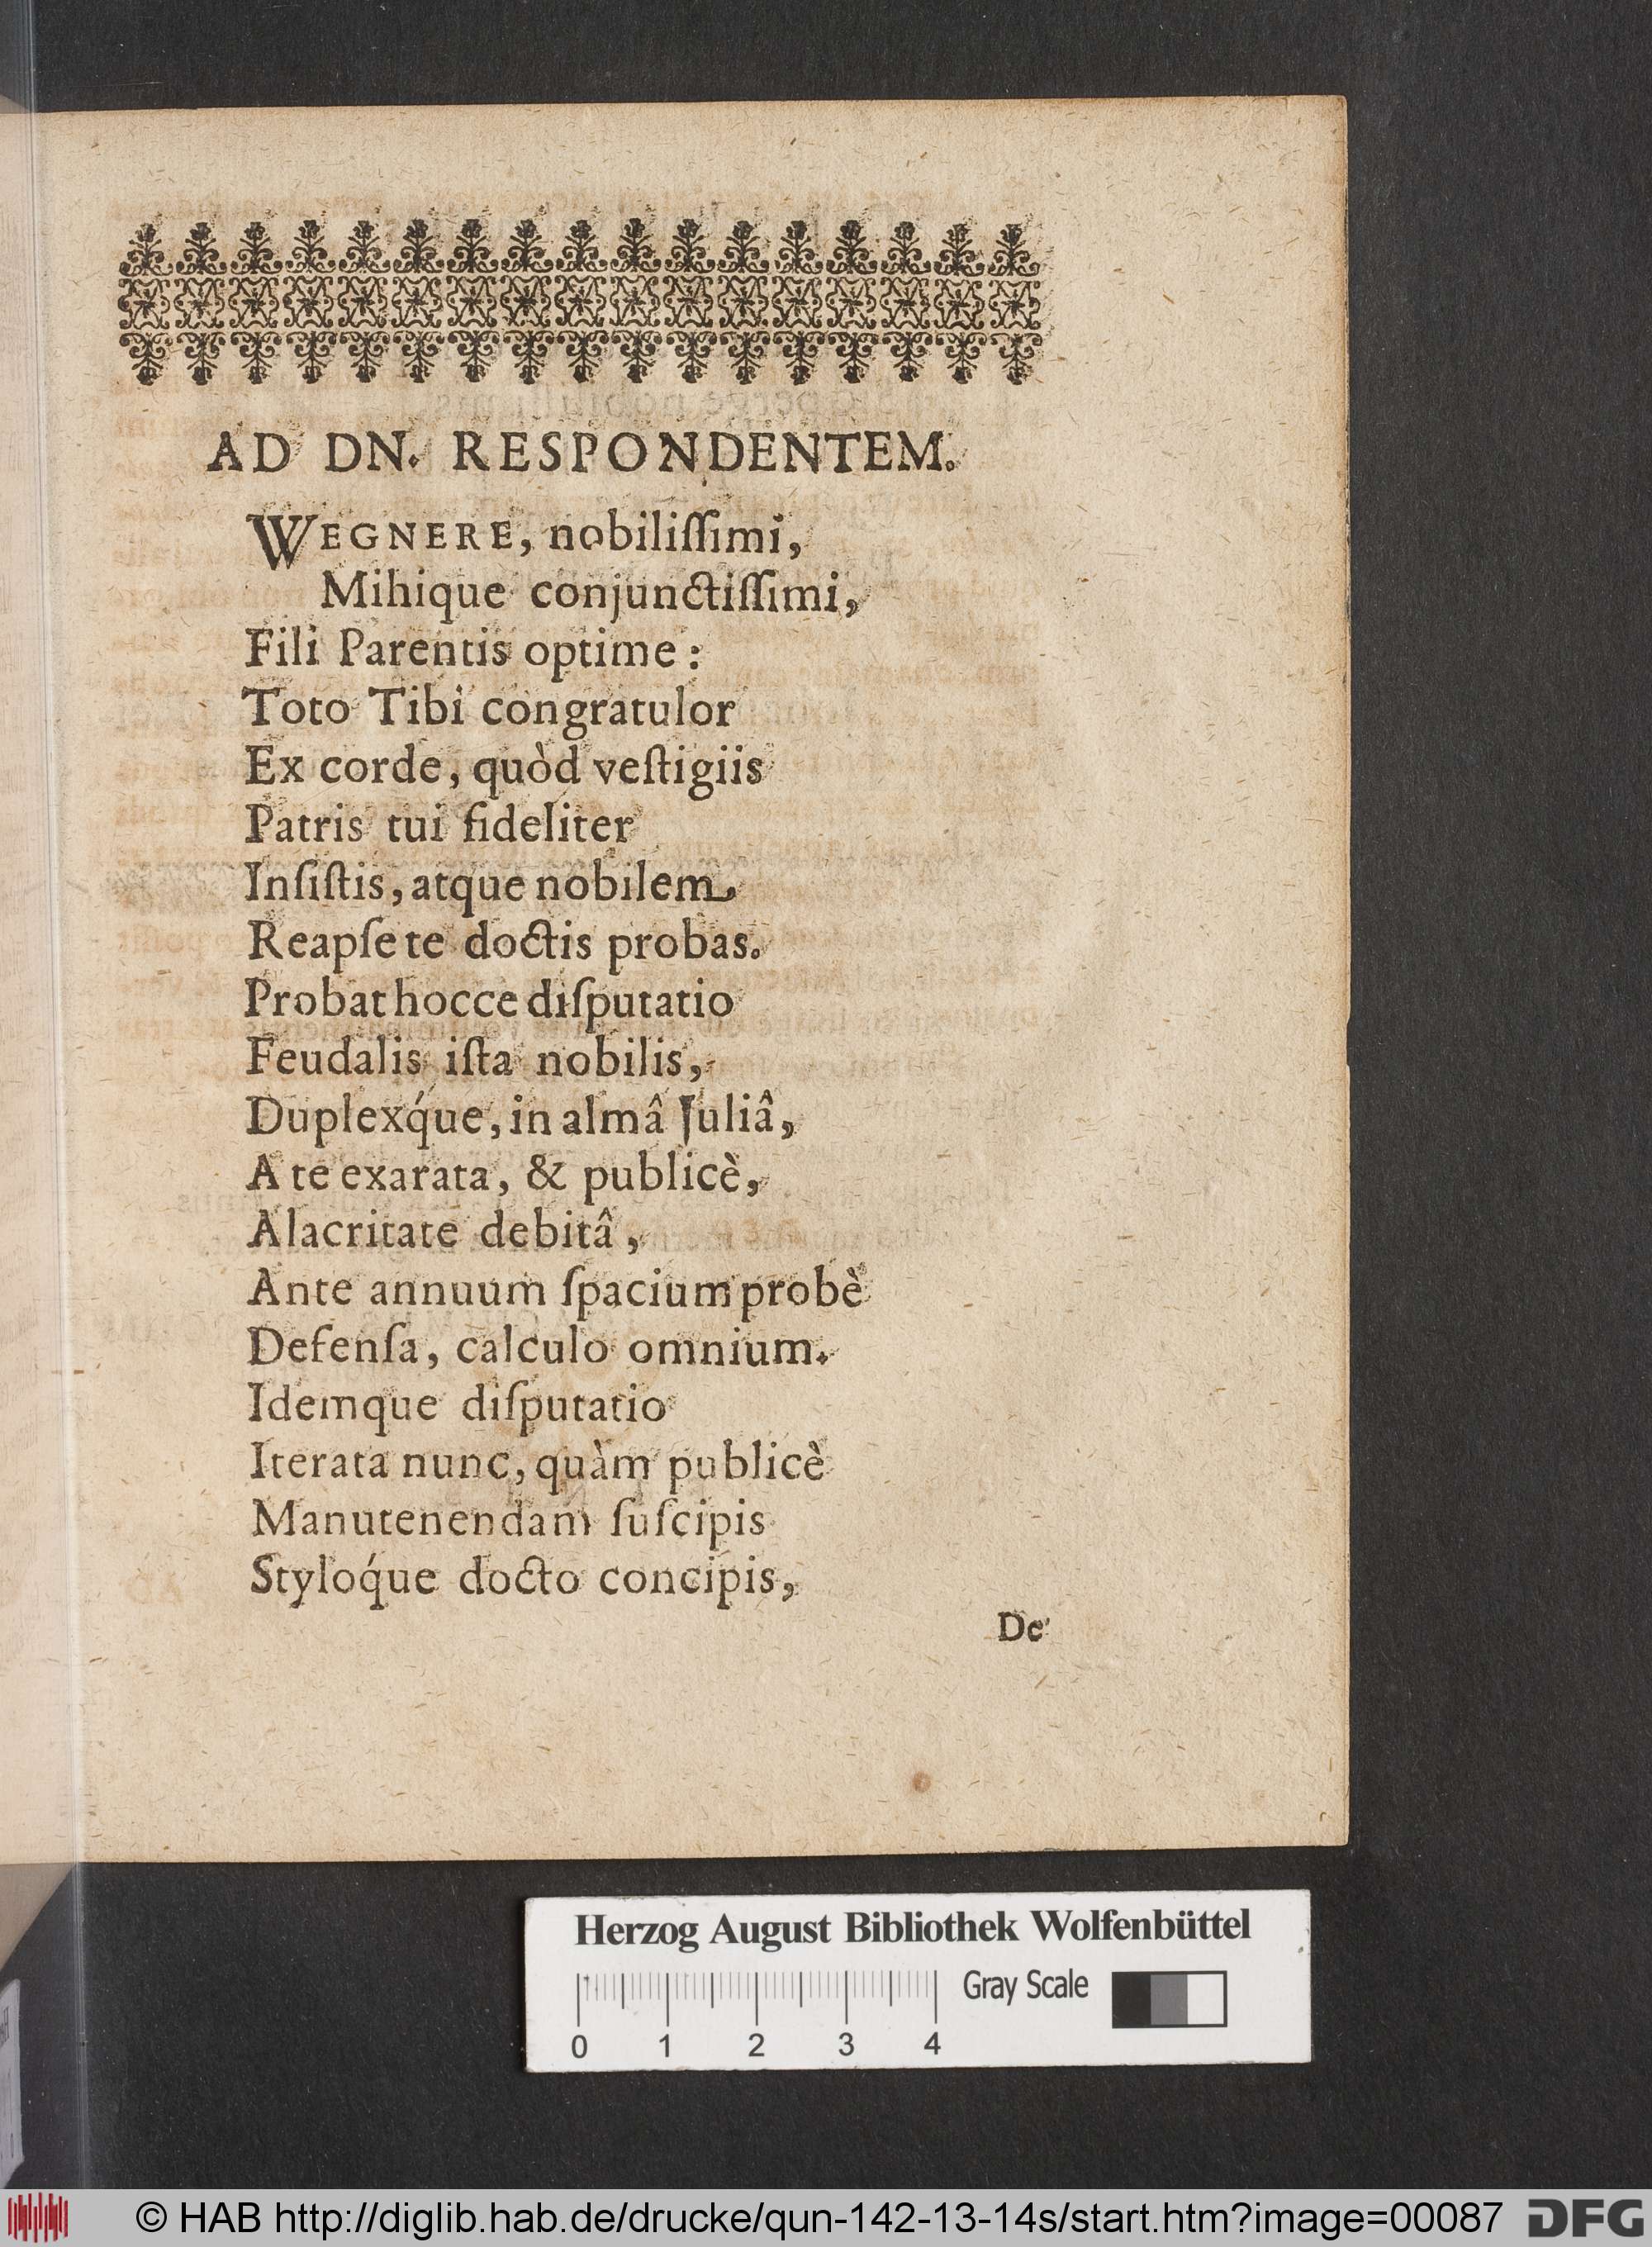 AD DN. RESPONDENTEM.
WEGNERE, nobiliſſimi,
Mihique conjunctiſſimi,
Fili Parentis optime:
Toto Tibi congratulor
Ex corde, quòd veſtigiis
Patris tui fideliter
Inſiſtis, atque nobilem
Reapſe te doctis probas.
Probat hocce diſputatio
Feudalis iſta nobilis,
Duplexq́ue, in almâ Juliâ,
A te exarata, & publicè,
Alacritate debitâ,
Ante annuum ſpacium probè
Defenſa, calculo omnium.
Idemque diſputatio
Iterata nunc, quàm publicè
Manutenendam ſuſcipis
Styloq́ue docto concipis,
De
Herzog August Bibliothek Wolfenbüttel
Gray Scale
0 1 2 3 4
© HAB http://diglib.hab.de/drucke/qun-142-13-14s/start.htm?image=00087
DFG